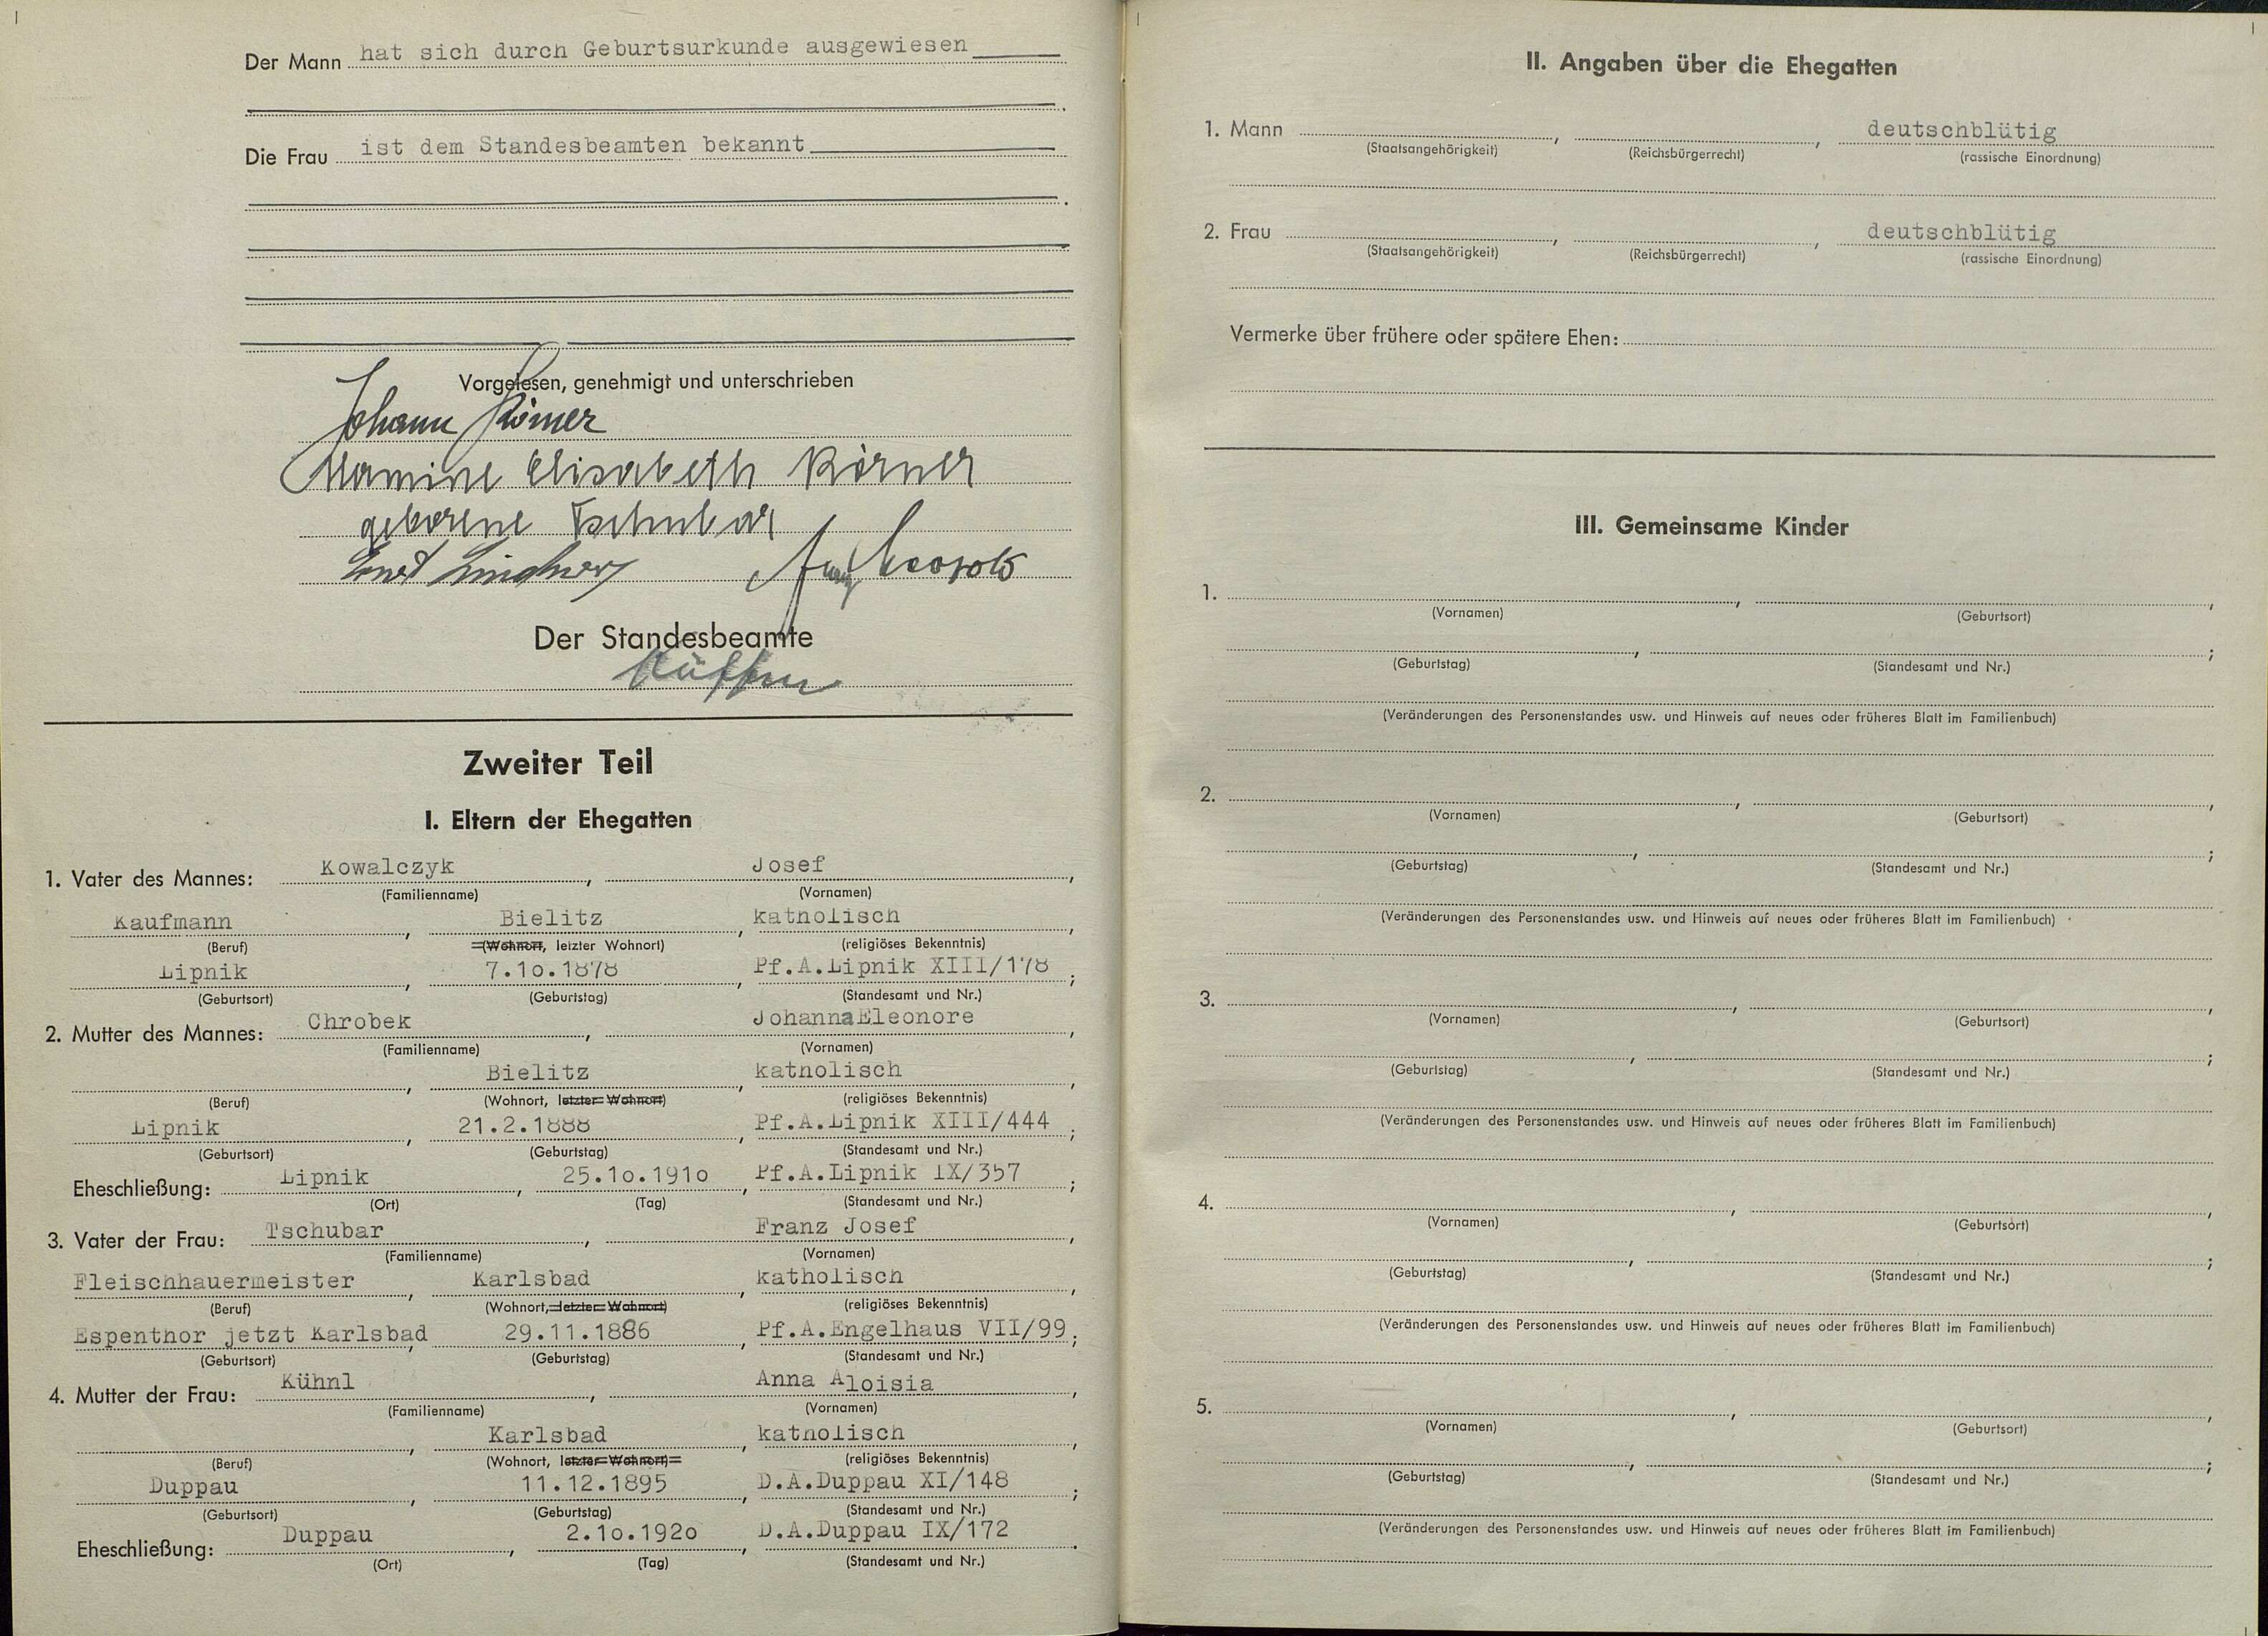 Der Mann hat sich durch Geburtsurkunde ausgewiesen
.
Die Frau ist dem Standesbeamten bekannt
.
Vorgelesen, genehmigt und unterschrieben
Johann
Elisabeth Körner
geborene Tschubar
Ernst Lindner
Der Standesbeamte
Zweiter Teil
I. Eltern der Ehegatten
1. Vater des Mannes: Kowalczyk , Josef ,
(Familienname) (Vornamen)
Kaufmann , Bielitz , katholisch ,
(Beruf) (Wohnort, letzter Wohnort) (religiöses Bekenntnis)
Lipnik , 7.10.1878 , Pf.A.Lipnik XIII/178 ;
(Geburtsort) (Geburtstag) (Standesamt und Nr.)
2. Mutter des Mannes: Chrobek , JohannaEleonore ,
(Familienname) (Vornamen)
, Bielitz , katholisch ,
(Beruf) (Wohnort, letzter Wohnort) (religiöses Bekenntnis)
Lipnik , 21.2.1888 , Pf.A.Lipnik XIII/444 ;
(Geburtsort) (Geburtstag) (Standesamt und Nr.)
Eheschließung: Lipnik , 25.10.1910 , Pf.A.Lipnik IX/357 ;
(Ort) (Tag) (Standesamt und Nr.)
3. Vater der Frau: Tschubar , Franz Josef ,
(Familienname) (Vornamen)
Fleischhauermeister , Karlsbad , katholisch ,
(Beruf) (Wohnort, letzter Wohnort) (religiöses Bekenntnis)
Espenthor jetzt Karlsbad , 29.11.1886 , Pf.A.Engelhaus VII/99 ;
(Geburtsort) (Geburtstag) (Standesamt und Nr.)
4. Mutter der Frau: Kühnl , Anna Aloisia ,
(Familienname) (Vornamen)
, Karlsbad , katholisch ,
(Beruf) (Wohnort, letzter Wohnort) (religiöses Bekenntnis)
Duppau , 11.12.1895 , D.A.Duppau XI/148 ;
(Geburtsort) (Geburtstag) (Standesamt und Nr.)
Eheschließung: Duppau , 2.10.1920 , D.A.Duppau IX/172 .
(Ort) (Tag) (Standesamt und Nr.)
II. Angaben über die Ehegatten
1. Mann , , deutschblütig
(Staatsangehörigkeit) (Reichsbürgerrecht) (rassische Einordnung)
2. Frau , , deutschblütig
(Staatsangehörigkeit) (Reichsbürgerrecht) (rassische Einordnung)
Vermerke über frühere oder spätere Ehen:
III. Gemeinsame Kinder
1. , ,
(Vornamen) (Geburtsort)
, ;
(Geburtstag) (Standesamt und Nr.)
(Veränderungen des Personenstandes usw. und Hinweis auf neues oder früheres Blatt im Familienbuch)
2. , ,
(Vornamen) (Geburtsort)
, ;
(Geburtstag) (Standesamt und Nr.)
(Veränderungen des Personenstandes usw. und Hinweis auf neues oder früheres Blatt im Familienbuch)
3. , ,
(Vornamen) (Geburtsort)
, ;
(Geburtstag) (Standesamt und Nr.)
(Veränderungen des Personenstandes usw. und Hinweis auf neues oder früheres Blatt im Familienbuch)
4. , ,
(Vornamen) (Geburtsort)
, ;
(Geburtstag) (Standesamt und Nr.)
(Veränderungen des Personenstandes usw. und Hinweis auf neues oder früheres Blatt im Familienbuch)
5. , ,
(Vornamen) (Geburtsort)
, ;
(Geburtstag) (Standesamt und Nr.)
(Veränderungen des Personenstandes usw. und Hinweis auf neues oder früheres Blatt im Familienbuch)